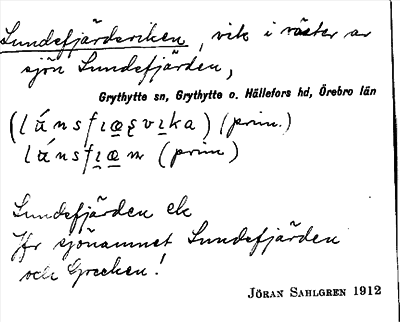 Sundsfjärdsviken, vik i väster av
sjön Sundsfjärden,
Grythytte sn, Grythytte o. Hällefors hd, Örebro län
(prim.)
(prim)
Sundsfjärden ek
Jfr sjönamnet Sundsfjärden
och Grecken!
JÖRAN SAHLGREN 1912